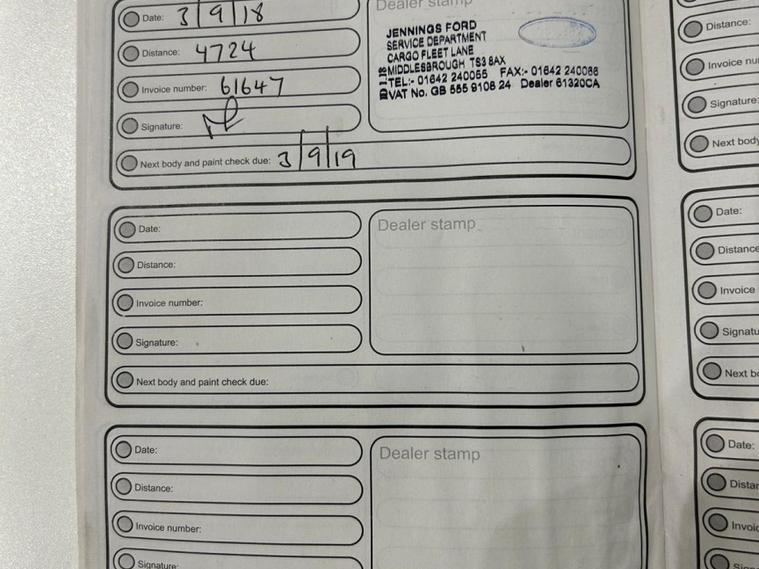 Date: 3/9/18
Dealer stamp
Distance: 4724
Invoice number: 61647
Signature:
JENNINGS FORD
SERVICE DEPARTMENT
CARGO FLEET LANE
MIDDLESBROUGH TS3 8AX
TEL:- 01642 240055 FAX:- 01642 240088
VAT No. GB 555 9108 24 Dealer 61320CA
Next body and paint check due: 3/9/19
Date:
Distance:
Invoice number:
Signature:
Next body and paint check due:
Dealer stamp
Date:
Distance:
Invoice number:
Signature:
Dealer stamp
Distance:
Invoice nu
Signature:
Next body
Date:
Distance
Invoice
Signatu
Next bo
Date:
Distan
Invoic